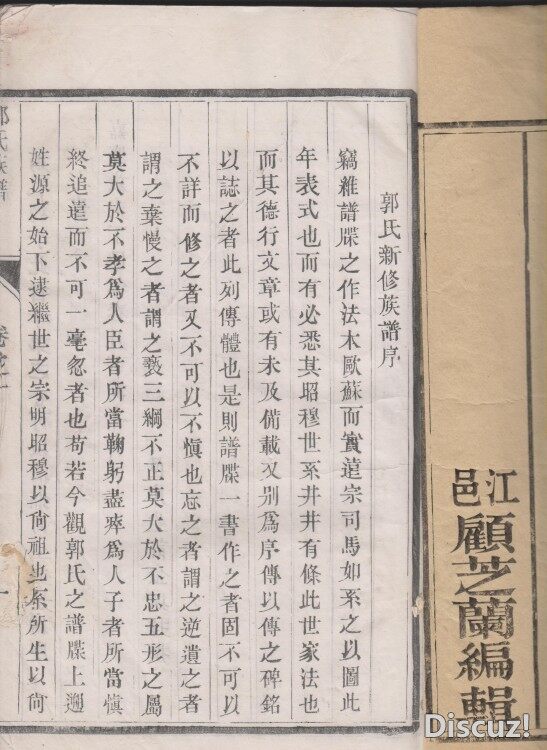 江邑
顧芝蘭編輯
郭氏新修族譜序
竊維譜牒之作法本歐蘇而實遠宗司馬如系之以圖此
年表式也而有必悉其昭穆世系井井有條此世家法也
而其德行文章或有未及備載又別為序傳以傳之碑銘
以誌之者此列傳體也是則譜牒一書作之者固不可以
不詳而修之者又不可以不愼也忘之者謂之逆遺之者
謂之棄慢之者謂之褻三綱不正莫大於不忠五形之屬
莫大於不孝為人臣者所當鞠躬盡瘁為人子者所當愼
終追遠而不可一毫忽者也苟若今觀郭氏之譜牒上遡
姓源之始下逮繼世之宗明昭穆以尙祖也系所生以尙
郭氏族譜
卷之一
一
Discuz!